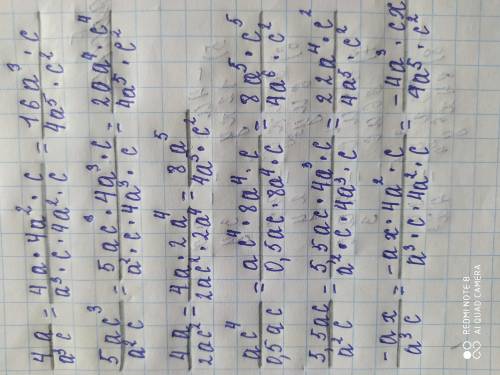 4a/a³c = 4a·4a²·c/a³·c·4a²·c = 16a³·c/4a⁵·c²
5ac³/a²c = 5ac³·4a³·c/a²·c·4a³·c = 20a⁴·c⁴/4a⁵·c²
4a/2ac² = 4a·2a⁴/2ac²·2a⁴ = 8a⁵/4a⁵·c²
ac⁴/0,5ac = ac⁴·8a⁴·c/0,5ac·8a⁴·c = 8a⁵·c⁵/4a⁶·c²
5,5ac/a²c = 5,5ac·4a³·c/a²·c·4a³·c = 22a⁴·c²/4a⁵·c²
-ax/a³c = -ax·4a²·c/a³·c·4a²·c = -4a³·cx/4a⁵·c²
REDMI NOTE 8
AI QUAD CAMERA